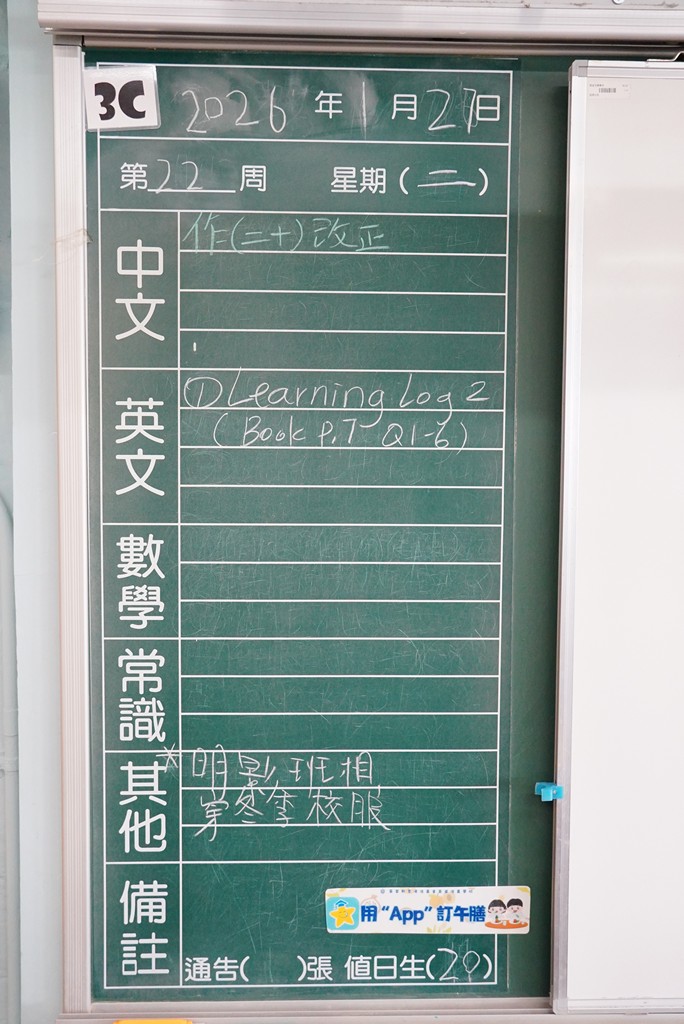 3C
2026 年 1 月 27 日
第 22 周 星期 (二)
中文
作(二十)改正
英文
① Learning Log 2
(Book P.7 Q1-6)
數學
常識
其他
*明影班相
穿冬季校服
備註
用 “App” 訂午膳
通告( )張 值日生(20)